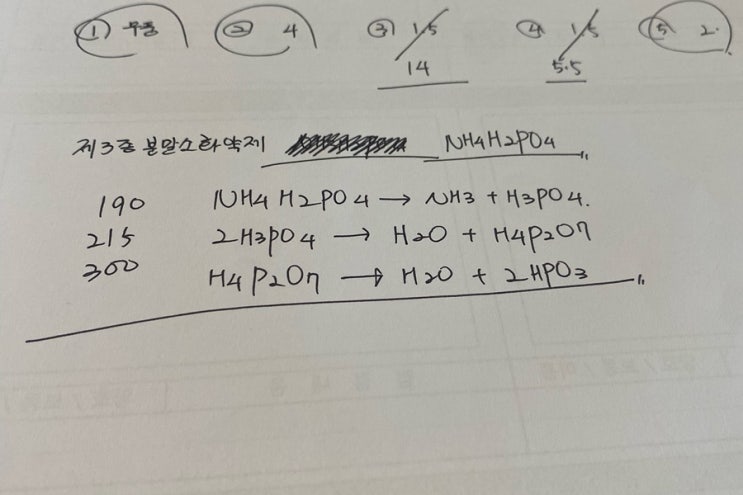 ① 우풍 ② 4 ③ 1/5 ④ 1/5 ⑤ 2.
14 5.5
제3종 분말소화약제 NH4H2PO4
190 NH4H2PO4 → NH3 + H3PO4.
215 2H3PO4 → H2O + H4P2O7
300 H4P2O7 → H2O + 2HPO3